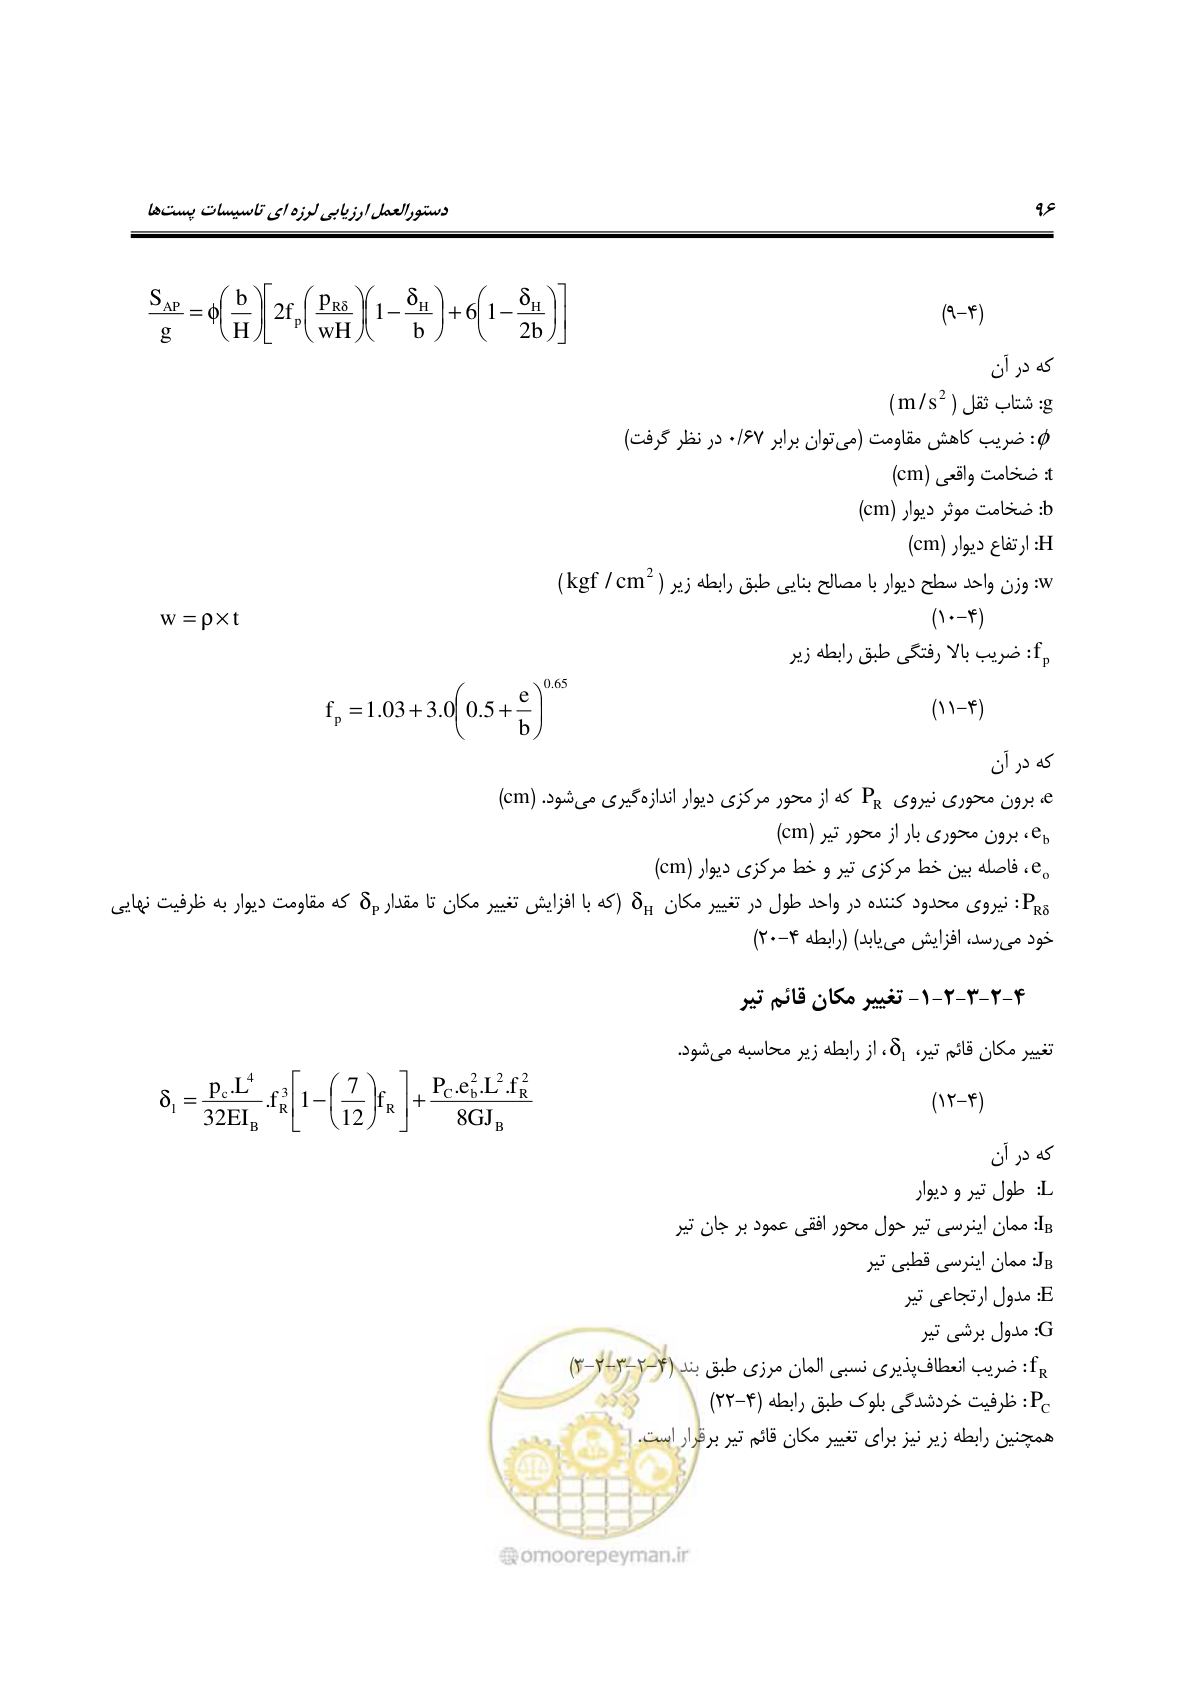 ۹۶ دستورالعمل ارزیابی لرزه ای تاسیسات پست‌ها
(۴-۹) S_AP/g = ϕ(b/H)[2f_p(p_Rδ/wH)(1 − δ_H/b) + 6(1 − δ_H/2b)]
که در آن
g: شتاب ثقل (m/s²)
ϕ: ضریب کاهش مقاومت (می‌توان برابر ۰/۶۷ در نظر گرفت)
t: ضخامت واقعی (cm)
b: ضخامت موثر دیوار (cm)
H: ارتفاع دیوار (cm)
w: وزن واحد سطح دیوار با مصالح بنایی طبق رابطه زیر (kgf / cm²)
(۴-۱۰) w = ρ × t
f_p: ضریب بالا رفتگی طبق رابطه زیر
(۴-۱۱) f_p = 1.03 + 3.0(0.5 + e/b)^0.65
که در آن
e، برون محوری نیروی P_R که از محور مرکزی دیوار اندازه‌گیری می‌شود. (cm)
e_b، برون محوری بار از محور تیر (cm)
e_o، فاصله بین خط مرکزی تیر و خط مرکزی دیوار (cm)
P_Rδ: نیروی محدود کننده در واحد طول در تغییر مکان δ_H (که با افزایش تغییر مکان تا مقدار δ_P که مقاومت دیوار به ظرفیت نهایی
خود می‌رسد، افزایش می‌یابد) (رابطه ۴-۲۰)
۴-۲-۳-۲-۱- تغییر مکان قائم تیر
تغییر مکان قائم تیر، δ_1، از رابطه زیر محاسبه می‌شود.
(۴-۱۲) δ_1 = (p_c.L^4/32EI_B).f_R^3[1 − (7/12)f_R] + P_C.e_b^2.L^2.f_R^2/8GJ_B
که در آن
L: طول تیر و دیوار
I_B: ممان اینرسی تیر حول محور افقی عمود بر جان تیر
J_B: ممان اینرسی قطبی تیر
E: مدول ارتجاعی تیر
G: مدول برشی تیر
f_R: ضریب انعطاف‌پذیری نسبی المان مرزی طبق بند (۴-۲-۳-۲-۳)
P_C: ظرفیت خردشدگی بلوک طبق رابطه (۴-۲۲)
همچنین رابطه زیر نیز برای تغییر مکان قائم تیر برقرار است.
امور پیمان
@omoorepeyman.ir